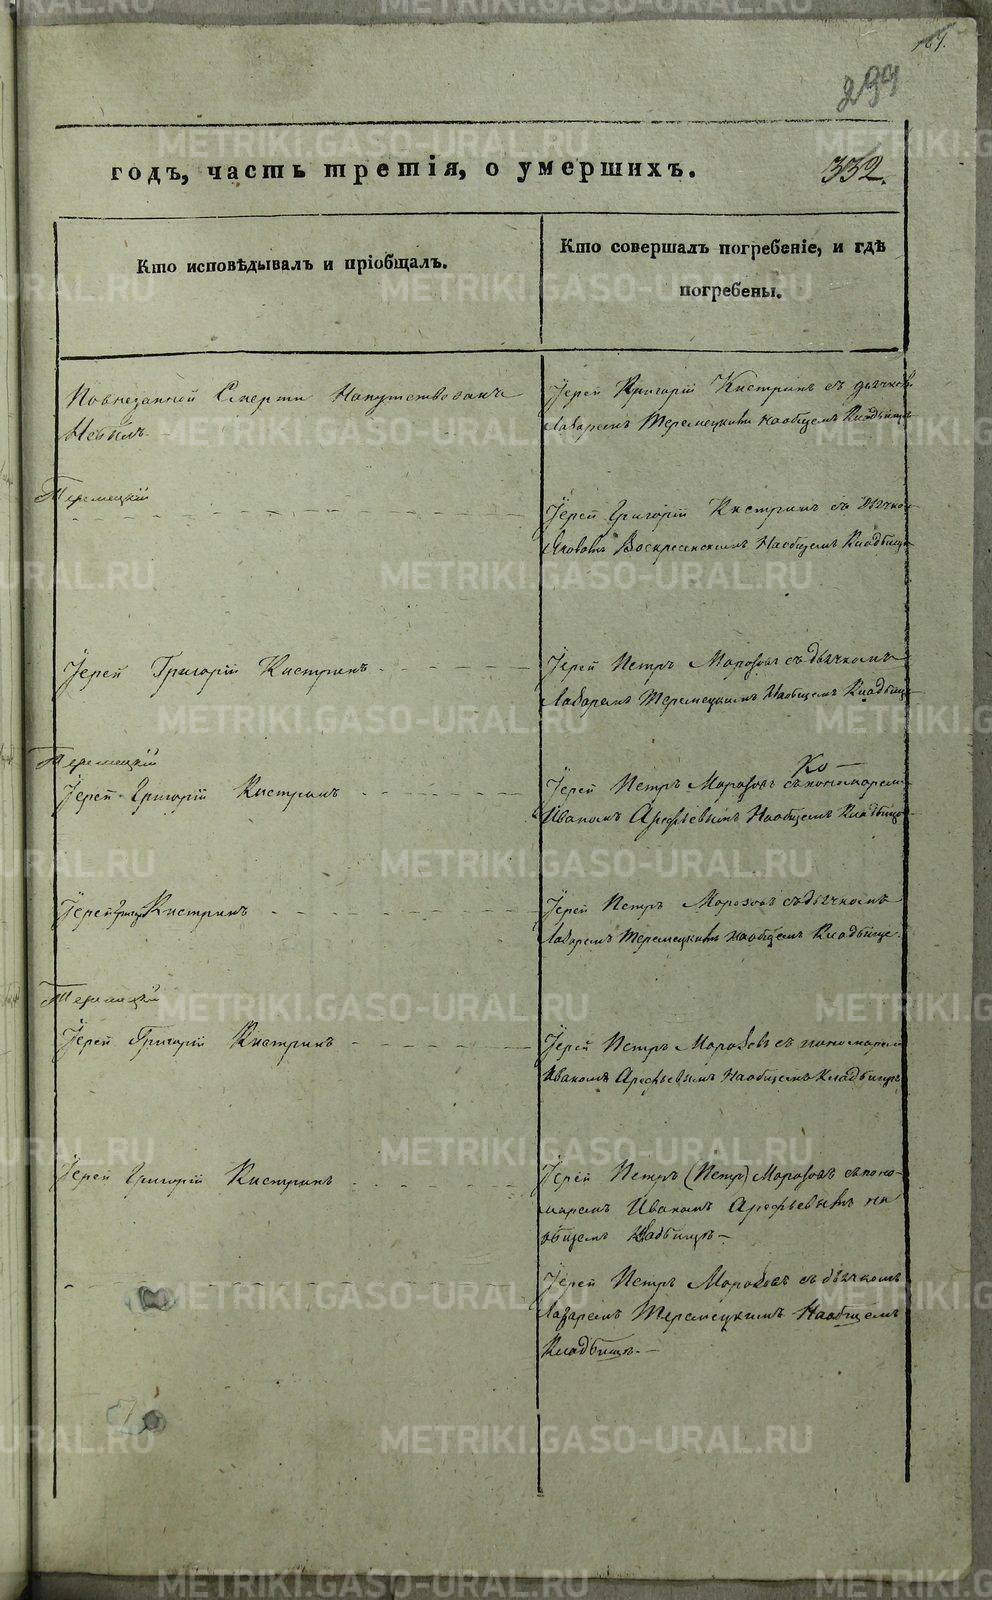 299
332.
годъ, часть третія, о умершихъ.
Кто исповѣдывалъ и пріобщалъ.
Кто совершалъ погребеніе, и гдѣ
погребены.
Повнезапной Смерти Напутствованъ
Небылъ
Іерей Григорій Кистринъ съ дьячком
Лазаремъ Теремецкимъ наобщемъ Кладбищѣ
Теремецкій
Іерей Григорій Кистринъ съ дьячком
Яковомъ Воскресенскимъ Наобщемъ Кладбищѣ
Іерей Григорій Кистринъ
Іерей Петръ Морозовъ съ дьячкомъ
Лазаремъ Теремецкимъ Наобщемъ Кладбищѣ
Теремецкій
Іерей Григорій Кистринъ
Іерей Петръ Морозовъ съ пономаремъ
Иваномъ Арефьевымъ Наобщемъ Кладбищѣ
Іерей Григор Кистринъ
Іерей Петръ Морозовъ съ дьячкомъ
Лазаремъ Теремецкимъ наобщемъ Кладбище.
Теремецкій
Іерей Григорій Кистринъ
Іерей Петръ Морозовъ съ пономаремъ
Иваномъ Арефьевымъ Наобщемъ Кладбищѣ
Іерей Григорій Кистринъ
Іерей Петръ (Петръ) Морозовъ съ поно-
маремъ Иваномъ Арефьевымъ на
общемъ Кладбищѣ —
Іерей Петръ Морозовъ съ дьячкомъ
Лазаремъ Теремецкимъ Наобщемъ
Кладбищѣ. —
METRIKI.GASO-URAL.RU